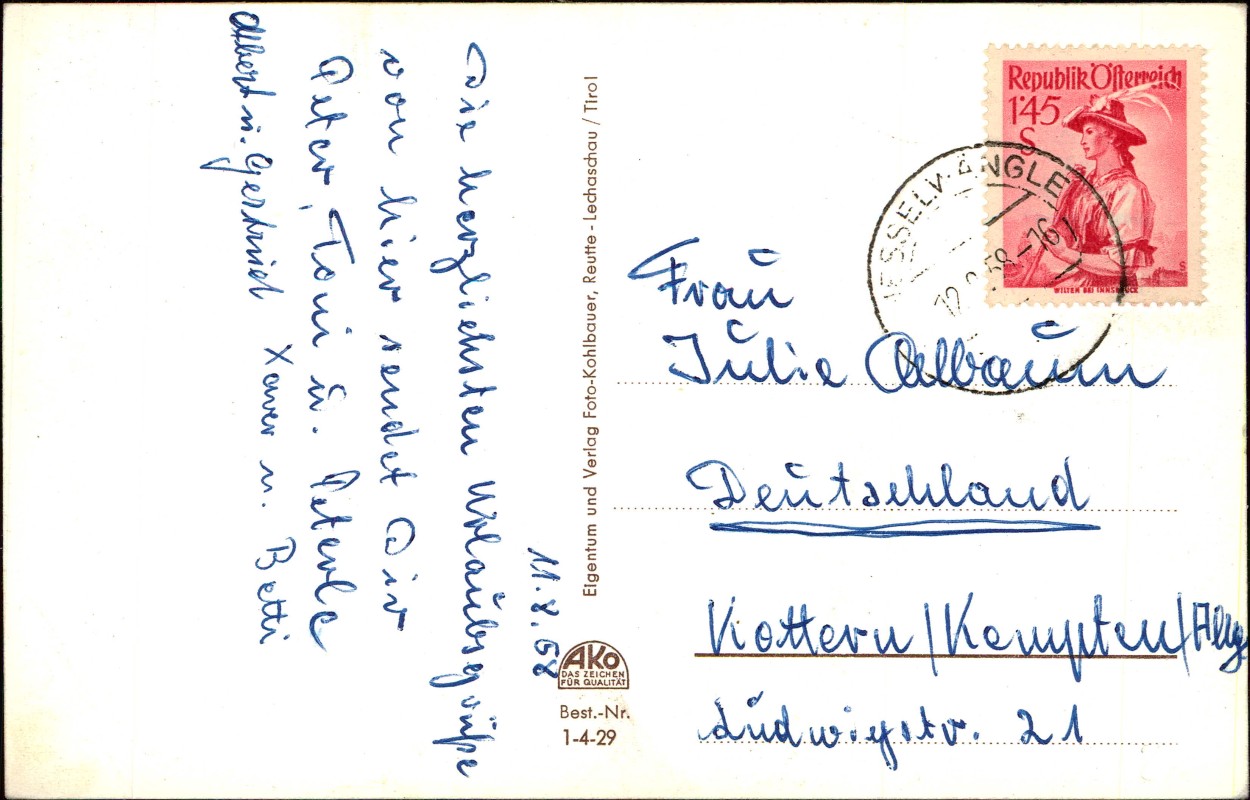 11.8.58
Die herzlichsten Urlaubsgrüße
von hier sendet Dir
Peter, Toni u. Peterle
Albert u. Gertrud Xaver u. Betti
Eigentum und Verlag Foto-Kohlbauer, Reutte - Lechaschau / Tirol
AKO
DAS ZEICHEN
FÜR QUALITÄT
Best.-Nr.
1-4-29
Republik Österreich
1'45
S
WILTEN BEI INNSBRUCK
ÄNGLE
58-16
Frau
Julie Albaum
Deutschland
Kottern/Kempten/Allg
Ludwigstr. 21